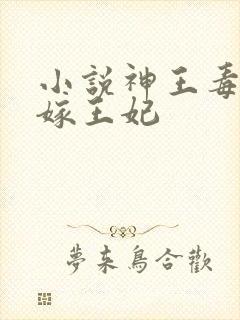 小説神王毒
嫁王妃
夢来鳥合歡